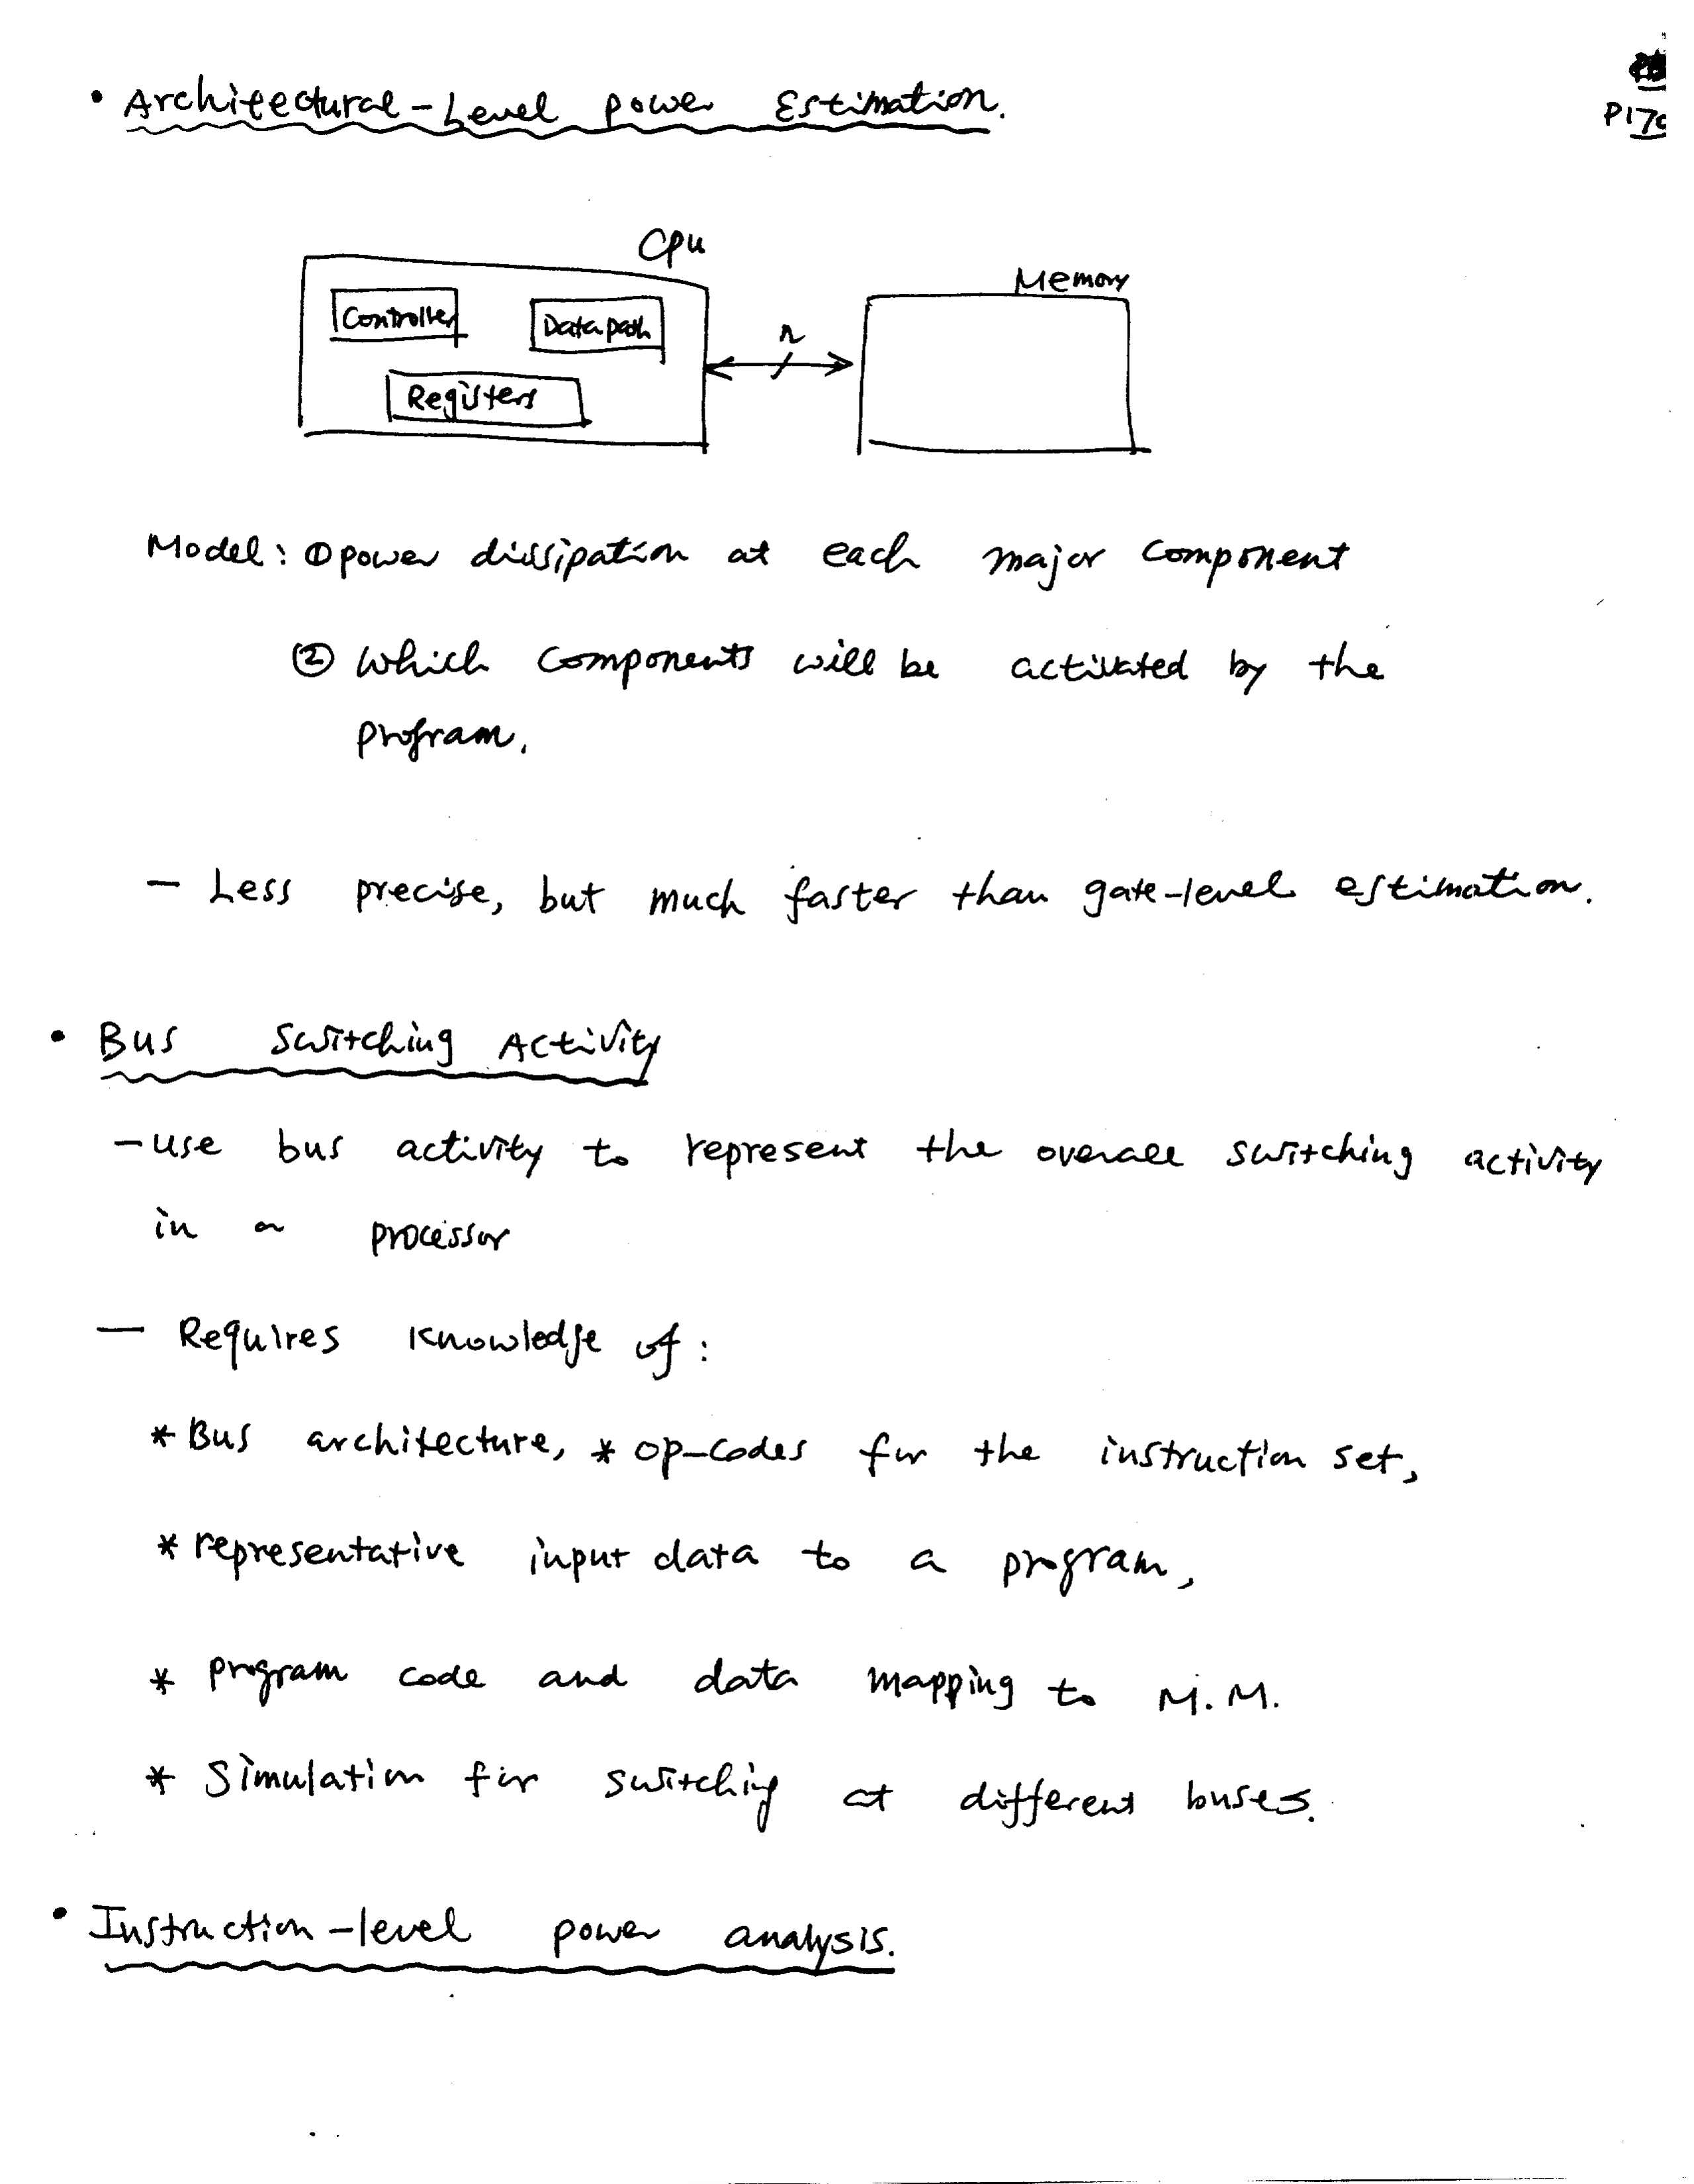 • Architectural-Level power Estimation.
Cpu
Memory
Controller
Datapath
n
Registers
Model: ① power dissipation at each major component
② Which components will be activated by the
program.
— Less precise, but much faster than gate-level estimation.
• Bus Switching Activity
— use bus activity to represent the overall switching activity
in a processor
— Requires knowledge of:
* Bus architecture, * op-codes for the instruction set,
* representative input data to a program,
* program code and data mapping to M.M.
* Simulation for switching at different buses.
• Instruction-level power analysis.